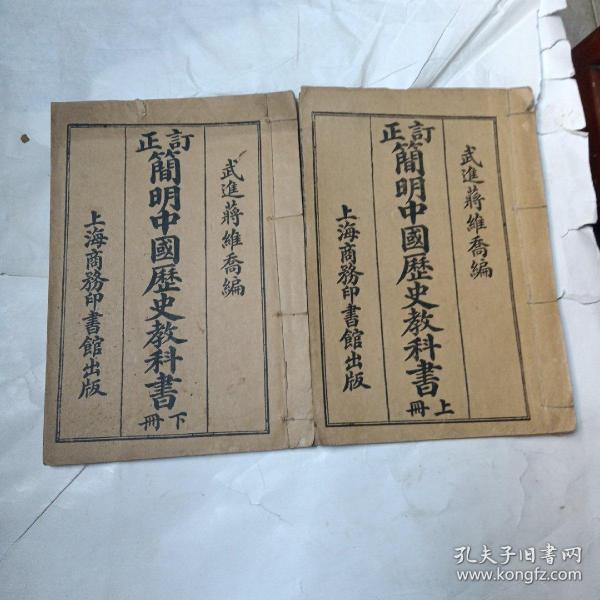 武進蔣維喬編
訂正簡明中國歷史教科書
上冊
上海商務印書館出版
武進蔣維喬編
訂正簡明中國歷史教科書
下冊
上海商務印書館出版
孔夫子旧书网
www.kongfz.com